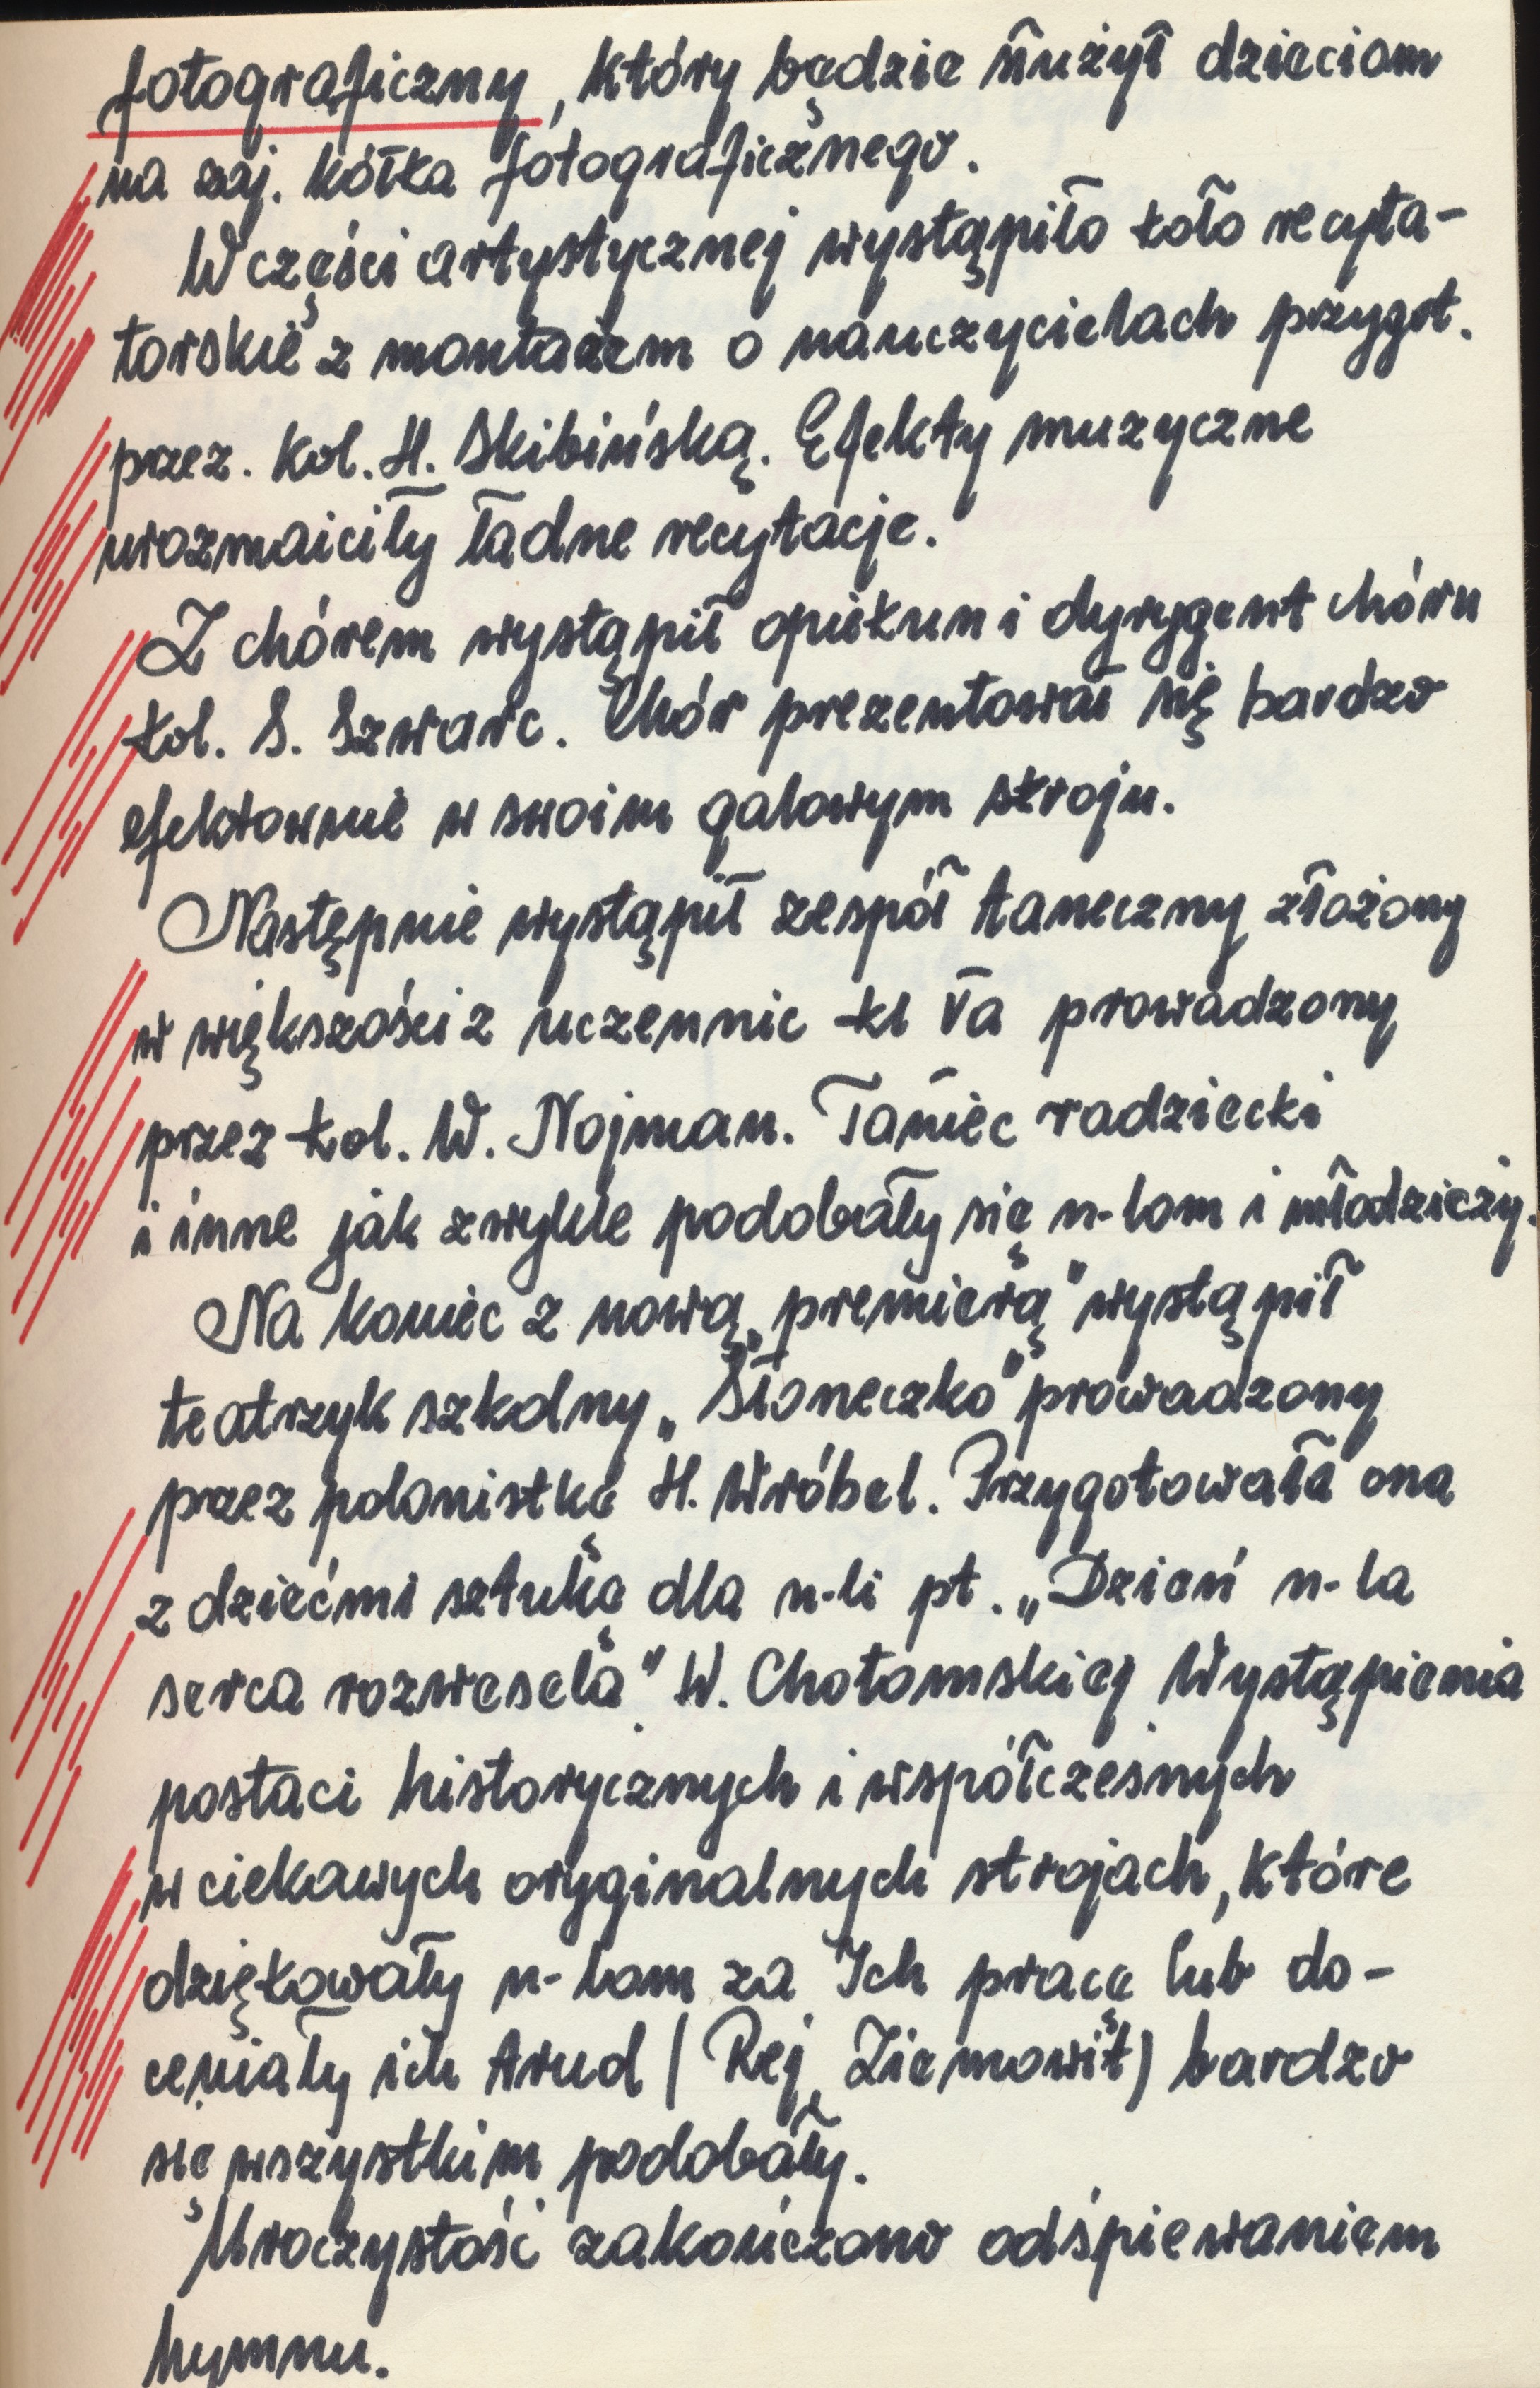 fotograficzny, który będzie służył dzieciom
na zaj. kółka fotograficznego.
W części artystycznej wystąpiło koło recyta-
torskie z montażem o nauczycielach przygot.
przez. kol. H. Skibińską. Efekty muzyczne
urozmaiciły ładne recytacje.
Z chórem wystąpił opiekun i dyrygent chóru
kol. S. Szwarc. Chór prezentował się bardzo
efektownie w swoim galowym stroju.
Następnie wystąpił zespół taneczny złożony
w większości z uczennic kl Va prowadzony
przez kol. W. Nojman. Taniec radziecki
i inne jak zwykle podobały się n-lom i młodzieży.
Na koniec z nową „premierą" wystąpił
teatrzyk szkolny „Słoneczko" prowadzony
przez polonistkę H. Wróbel. Przygotowała ona
z dziećmi sztukę dla n-li pt. „Dzień n-la
serca rozwesela" W. Chotomskiej Wystąpienia
postaci historycznych i współczesnych
w ciekawych oryginalnych strojach, które
dziękowały n-lom za Ich pracę lub do-
ceniały ich trud (Rej, Ziemowit) bardzo
się wszystkim podobały.
Uroczystość zakończono odśpiewaniem
hymnu.